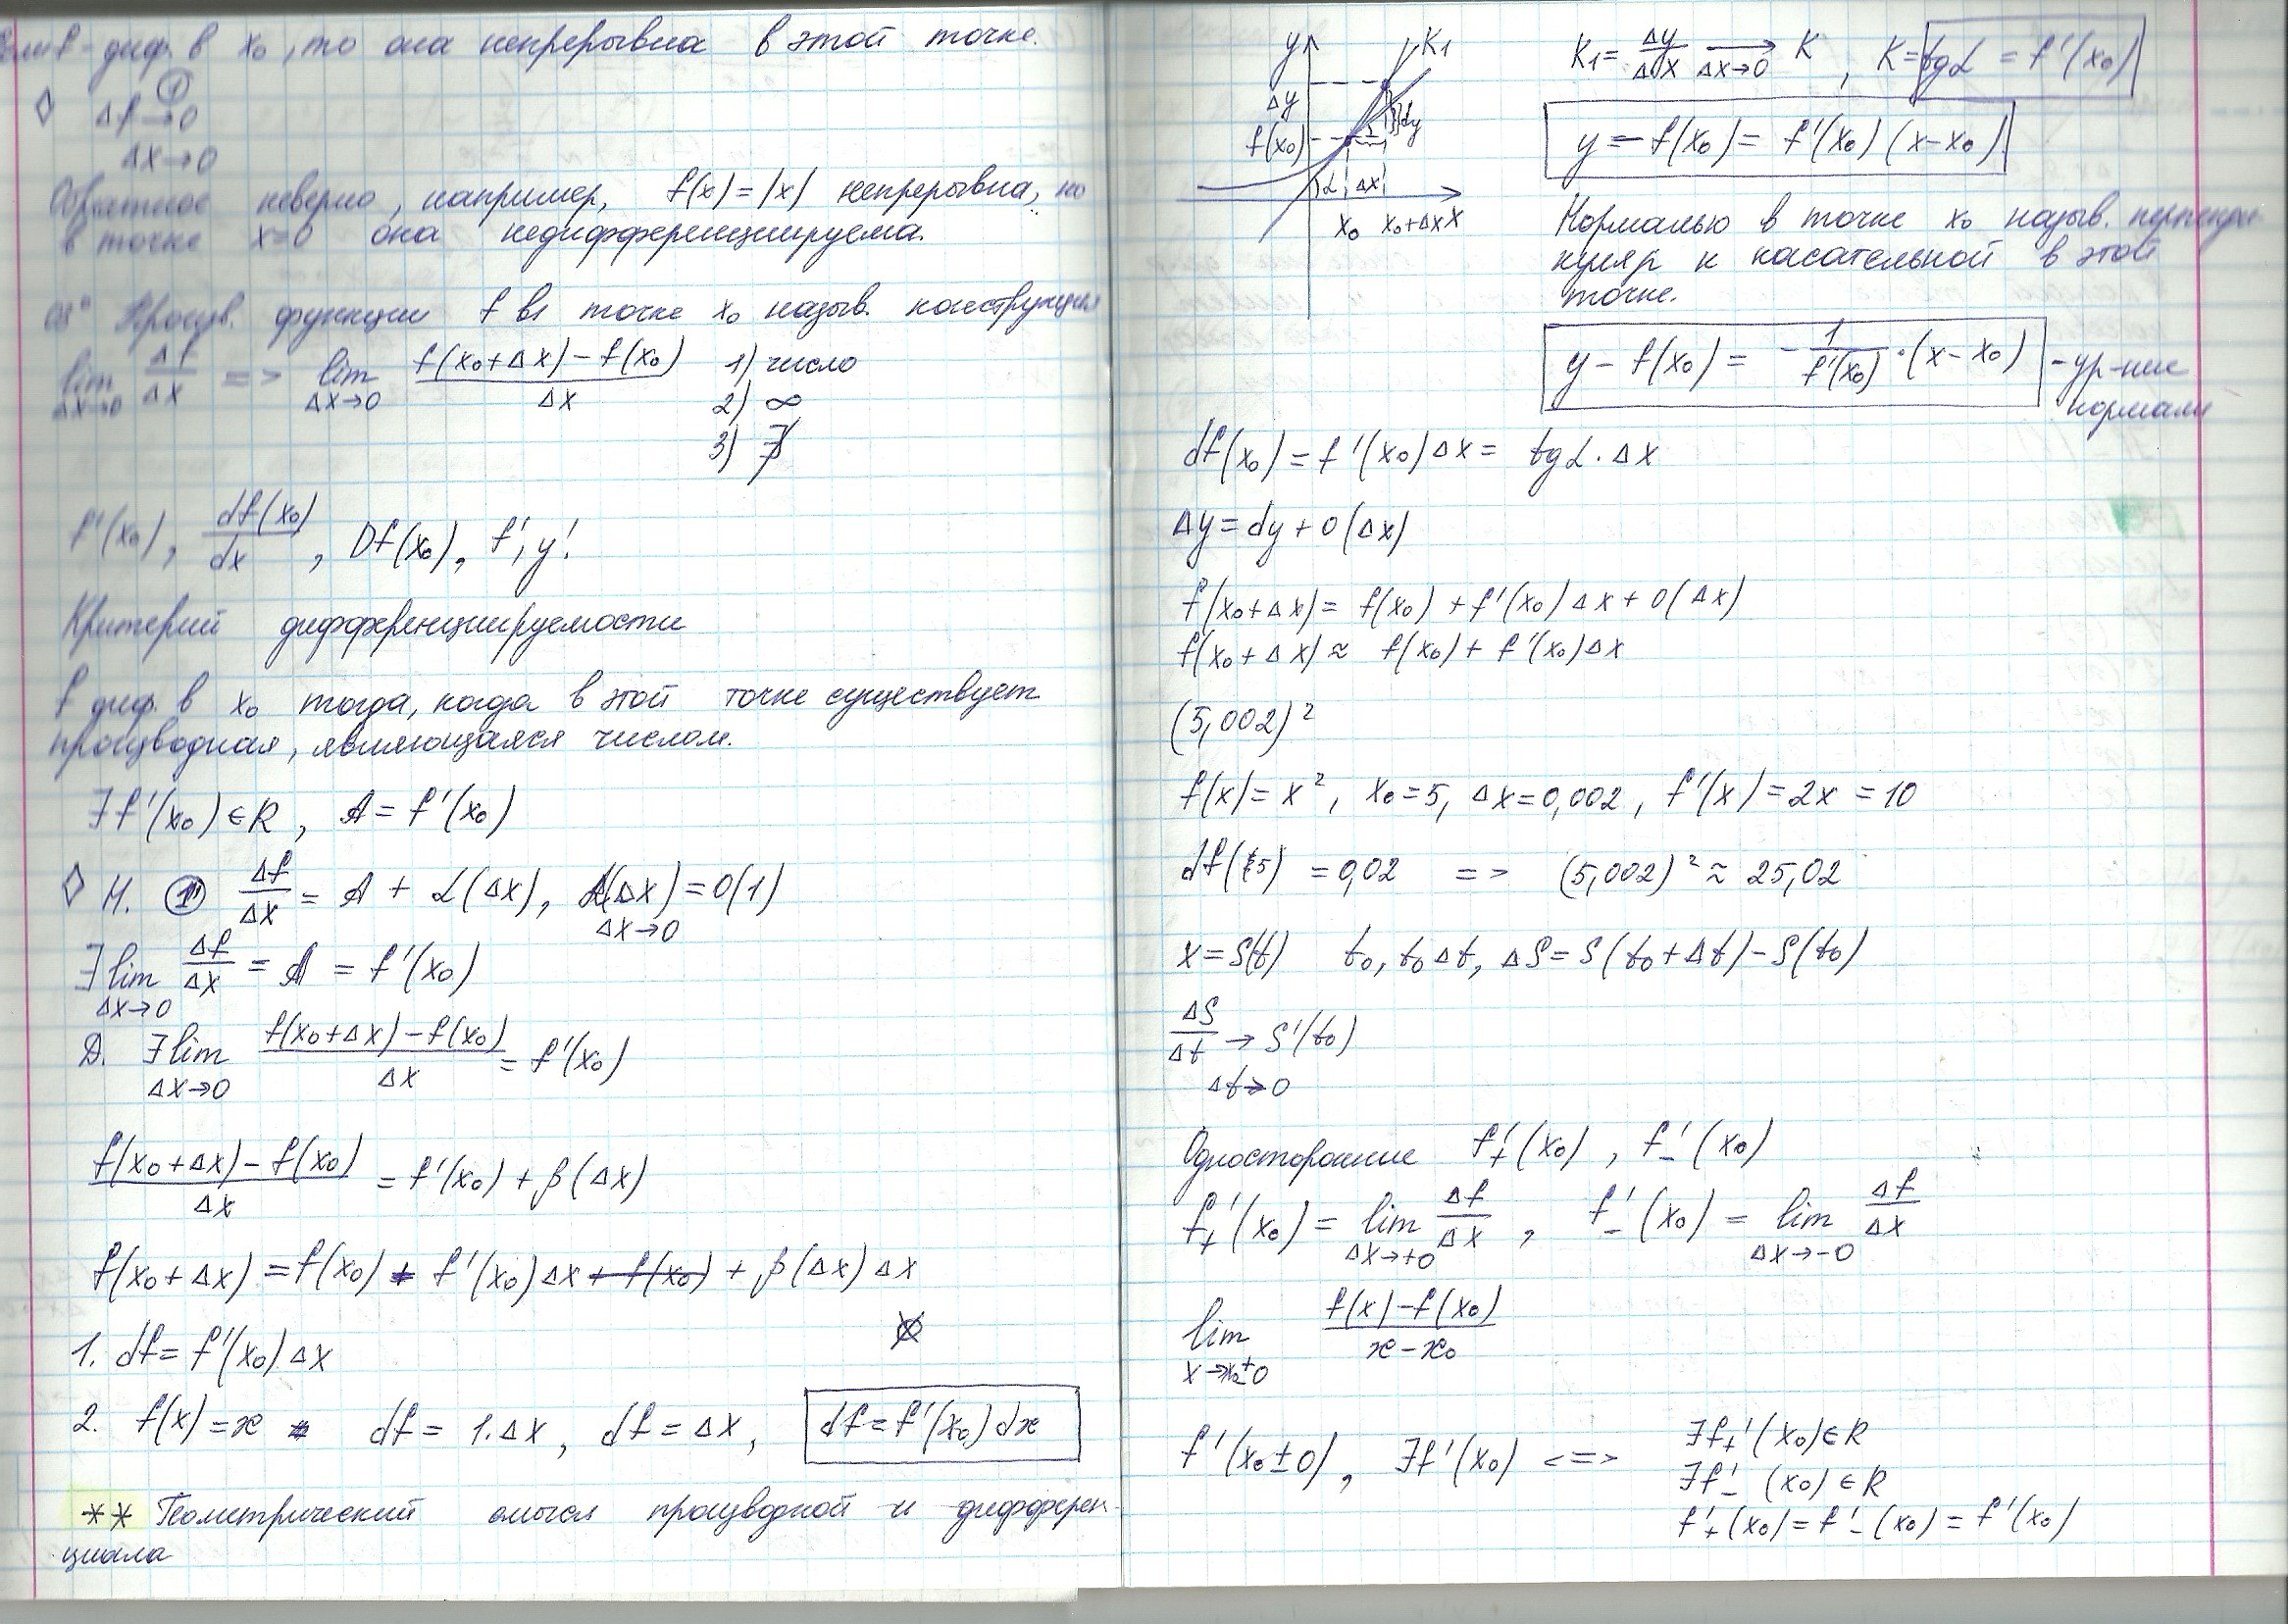 Если f - диф. в x₀, то она непрерывна в этой точке.
◊ Δf → 0
Δx→0
Обратное неверно, например, f(x) = |x| непрерывна, но
в точке x=0 она недифференцируема.
Произв. функции f в точке x₀ назыв. конструкция
lim Δx→0 Δf/Δx => lim Δx→0 (f(x₀+Δx) − f(x₀))/Δx 1) число
2) ∞
3) ∄
f'(x₀), df(x₀)/dx, Df(x₀), f', y'.
Критерий дифференцируемости
f диф. в x₀ тогда, когда в этой точке существует
производная, являющаяся числом.
∃f'(x₀) ∈ R, A = f'(x₀)
◊ Н. ① Δf/Δx = A + α(Δx), α(Δx) = o(1)
Δx→0
∃ lim Δx→0 Δf/Δx = A = f'(x₀)
Д. ∃ lim Δx→0 (f(x₀+Δx) − f(x₀))/Δx = f'(x₀)
(f(x₀+Δx) − f(x₀))/Δx = f'(x₀) + β(Δx)
f(x₀+Δx) = f(x₀) + f'(x₀)Δx + f(x₀) + β(Δx)Δx
1. df = f'(x₀)Δx
2. f(x) = x df = 1·Δx, df = Δx, df = f'(x₀)dx
** Геометрический смысл производной и дифферен-
циала
y K₁
Δy
dy
f(x₀)
α Δx
x₀ x₀+Δx x
K₁ = Δy/Δx → K Δx→0, K = tgα = f'(x₀)
y − f(x₀) = f'(x₀)(x−x₀)
Нормалью в точке x₀ назыв. перпенди-
куляр к касательной в этой
точке.
y − f(x₀) = −1/f'(x₀) · (x − x₀) - ур-ние
нормали
df(x₀) = f'(x₀)Δx = tgα · Δx
Δy = dy + o(Δx)
f(x₀+Δx) = f(x₀) + f'(x₀)Δx + o(Δx)
f(x₀+Δx) ≈ f(x₀) + f'(x₀)Δx
(5,002)²
f(x) = x², x₀=5, Δx=0,002, f'(x) = 2x = 10
df(5) = 0,02 => (5,002)² ≈ 25,02
x = S(t) t₀, t₀Δt, ΔS = S(t₀+Δt) − S(t₀)
ΔS/Δt → S'(t₀)
Δt→0
Односторонние f'₊(x₀), f'₋(x₀)
f'₊(x₀) = lim Δx→+0 Δf/Δx, f'₋(x₀) = lim Δx→−0 Δf/Δx
lim x→x₀±0 (f(x) − f(x₀))/(x − x₀)
f'(x₀±0), ∃f'(x₀) <=> ∃f'₊(x₀) ∈ R
∃f'₋(x₀) ∈ R
f'₊(x₀) = f'₋(x₀) = f'(x₀)